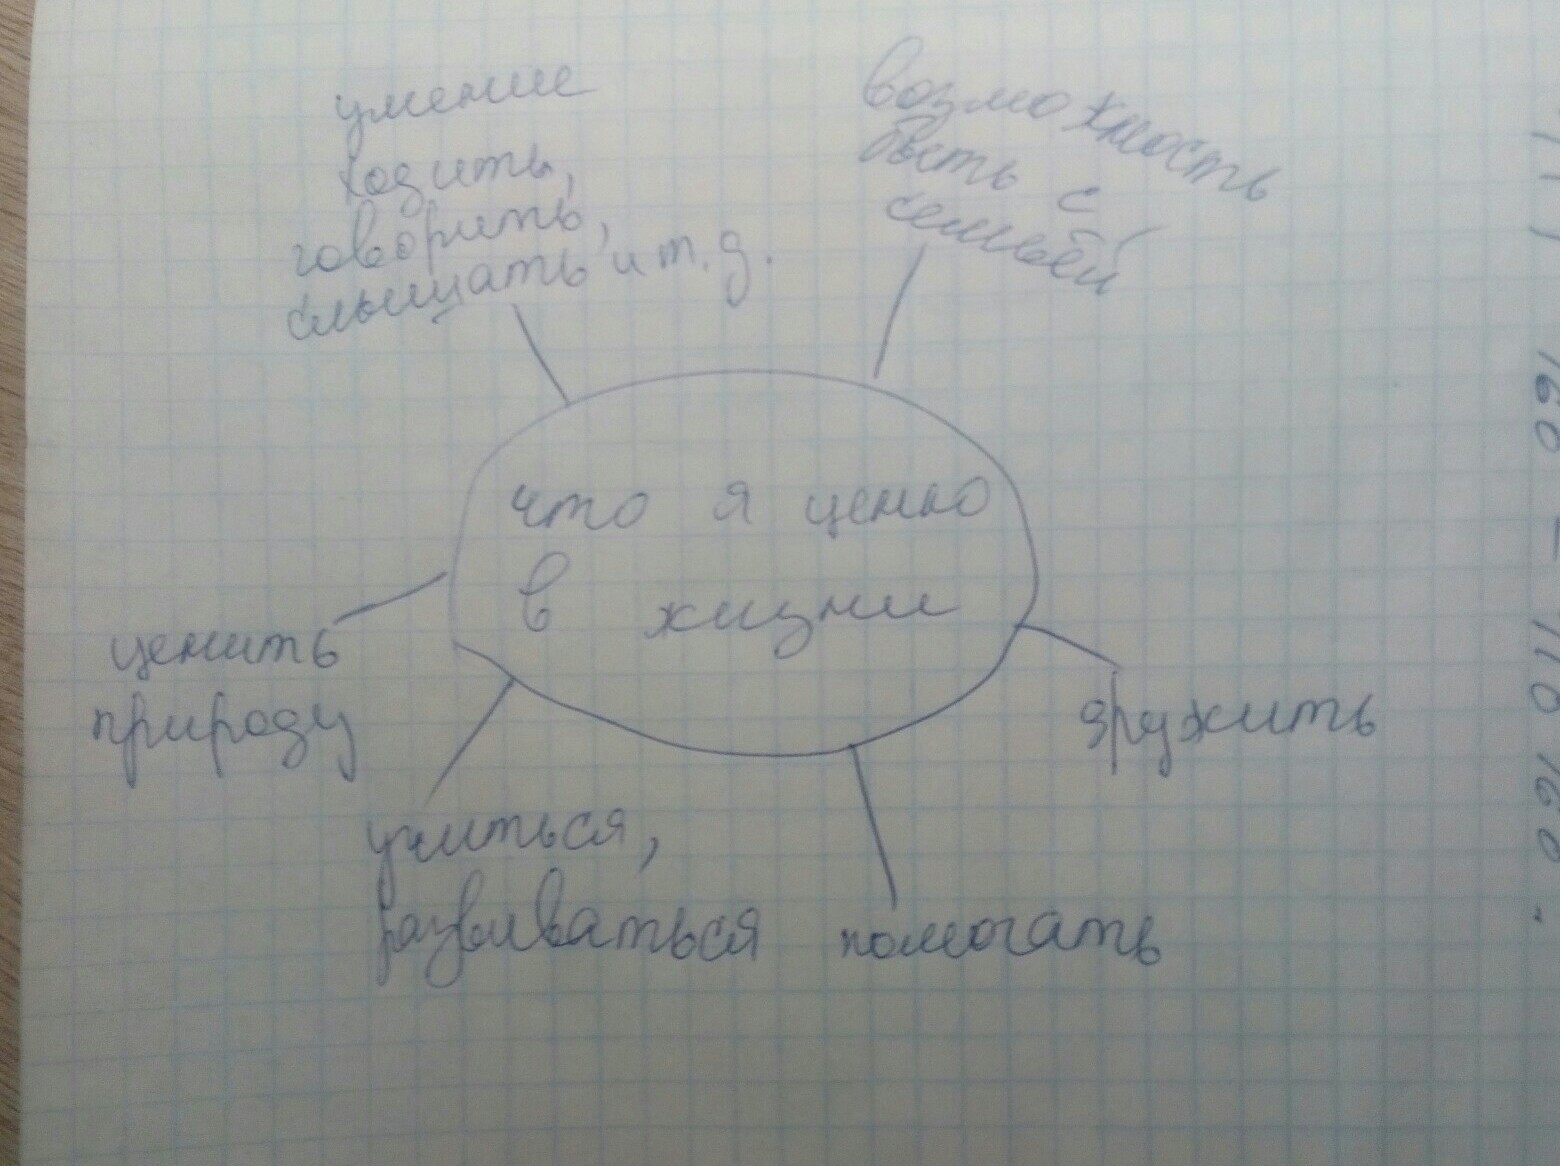 умение
ходить,
говорить,
слышать и т.д.
возможность
быть с
семьёй
что я ценю
в жизни
ценить
природу
дружить
учиться,
развиваться
помогать